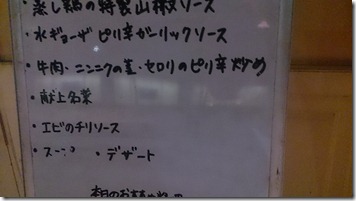 ・蒸し鶏の特製山椒ソース
・水ギョーザ ピリ辛ガーリックソース
・牛肉・ニンニクの茎・セロリのピリ辛炒め
・献上名菜
・エビのチリソース
・スープ ・デザート
本日のおすすめ